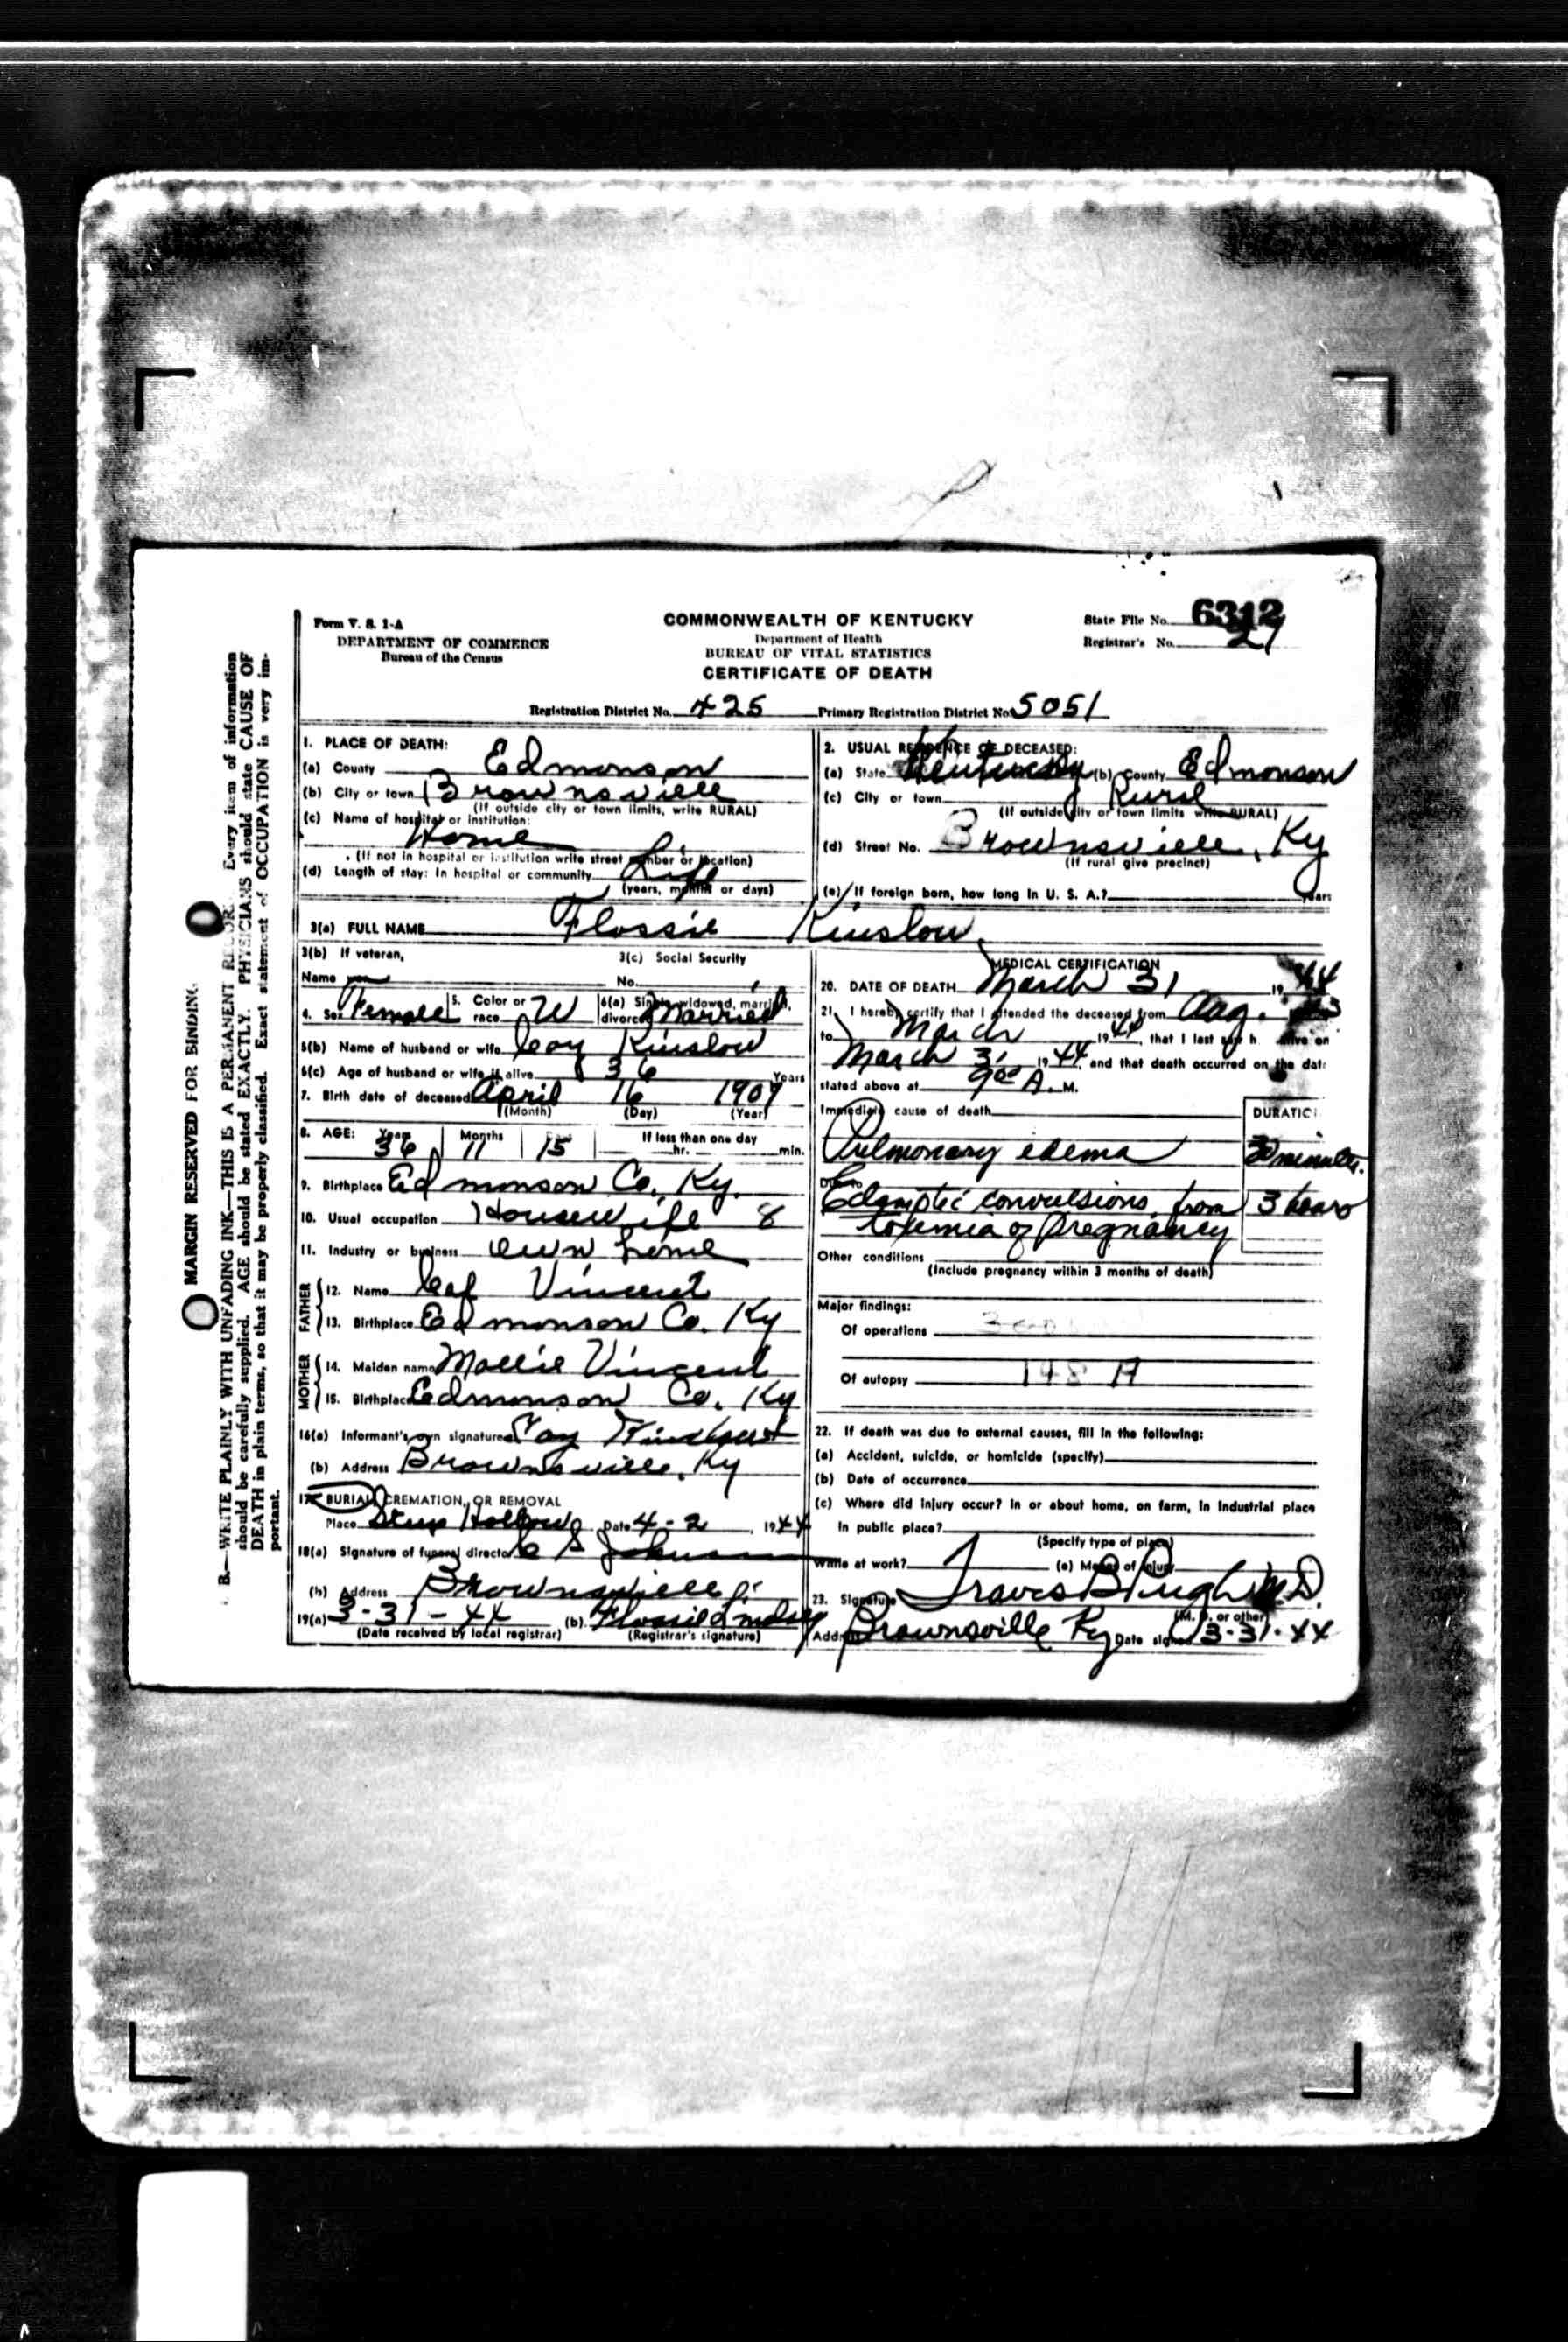 Form V. S. 1-A
DEPARTMENT OF COMMERCE
Bureau of the Census
COMMONWEALTH OF KENTUCKY
Department of Health
BUREAU OF VITAL STATISTICS
CERTIFICATE OF DEATH
State File No. 6312
Registrar's No. 27
Registration District No. 425 Primary Registration District No. 5051
MARGIN RESERVED FOR BINDING
B.—WRITE PLAINLY WITH UNFADING INK—THIS IS A PERMANENT RECORD. Every item of information
should be carefully supplied. AGE should be stated EXACTLY. PHYSICIANS should state CAUSE OF
DEATH in plain terms, so that it may be properly classified. Exact statement of OCCUPATION is very im-
portant.
1. PLACE OF DEATH:
(a) County Edmonson
(b) City or town Brownsville
(If outside city or town limits, write RURAL)
(c) Name of hospital or institution:
Home
(If not in hospital or institution write street number or location)
(d) Length of stay: In hospital or community Life
(years, months or days)
2. USUAL RESIDENCE OF DECEASED:
(a) State Kentucky (b) County Edmonson
(c) City or town Rural
(If outside city or town limits write RURAL)
(d) Street No. Brownsville, Ky
(If rural give precinct)
(e) If foreign born, how long in U. S. A.? years
3(a) FULL NAME Flossie Kinslow
3(b) If veteran,
Name
3(c) Social Security
No.
4. Sex Female 5. Color or race W 6(a) Single, widowed, married, divorced Married
6(b) Name of husband or wife Coy Kinslow
6(c) Age of husband or wife if alive 36 Years
7. Birth date of deceased April 16 1907
(Month) (Day) (Year)
8. AGE: Years 36 Months 11 15 If less than one day
hr. min.
9. Birthplace Edmonson Co. Ky.
10. Usual occupation Housewife 8
11. Industry or business own home
FATHER
12. Name Vincent
13. Birthplace Edmonson Co. Ky
MOTHER
14. Maiden name Mollie Vincent
15. Birthplace Edmonson Co. Ky
16(a) Informant's own signature
(b) Address Brownsville, Ky
17. BURIAL, CREMATION, OR REMOVAL
Place Hollow Date 4-2, 1944
18(a) Signature of funeral director
(b) Address Brownsville
19(a) 3-31-44 (b) Flossie Lindsey
(Date received by local registrar) (Registrar's signature)
MEDICAL CERTIFICATION
20. DATE OF DEATH March 31 1944
21. I hereby certify that I attended the deceased from Aug.
to March 1944, that I last saw h alive on
March 31 1944, and that death occurred on the date
stated above at 9:00 A. M.
Immediate cause of death
DURATION
Pulmonary edema 30 minutes.
Due to
Eclamptic convulsions from 3 hours
toxemia of pregnancy
Other conditions
(Include pregnancy within 3 months of death)
Major findings:
Of operations
Of autopsy 148 A
22. If death was due to external causes, fill in the following:
(a) Accident, suicide, or homicide (specify)
(b) Date of occurrence
(c) Where did injury occur? In or about home, on farm, in industrial place
in public place?
(Specify type of place)
While at work? (e) Means of injury
23. Signature Travis B Pugh M.D.
(M. D. or other)
Address Brownsville Ky Date signed 3-31-44